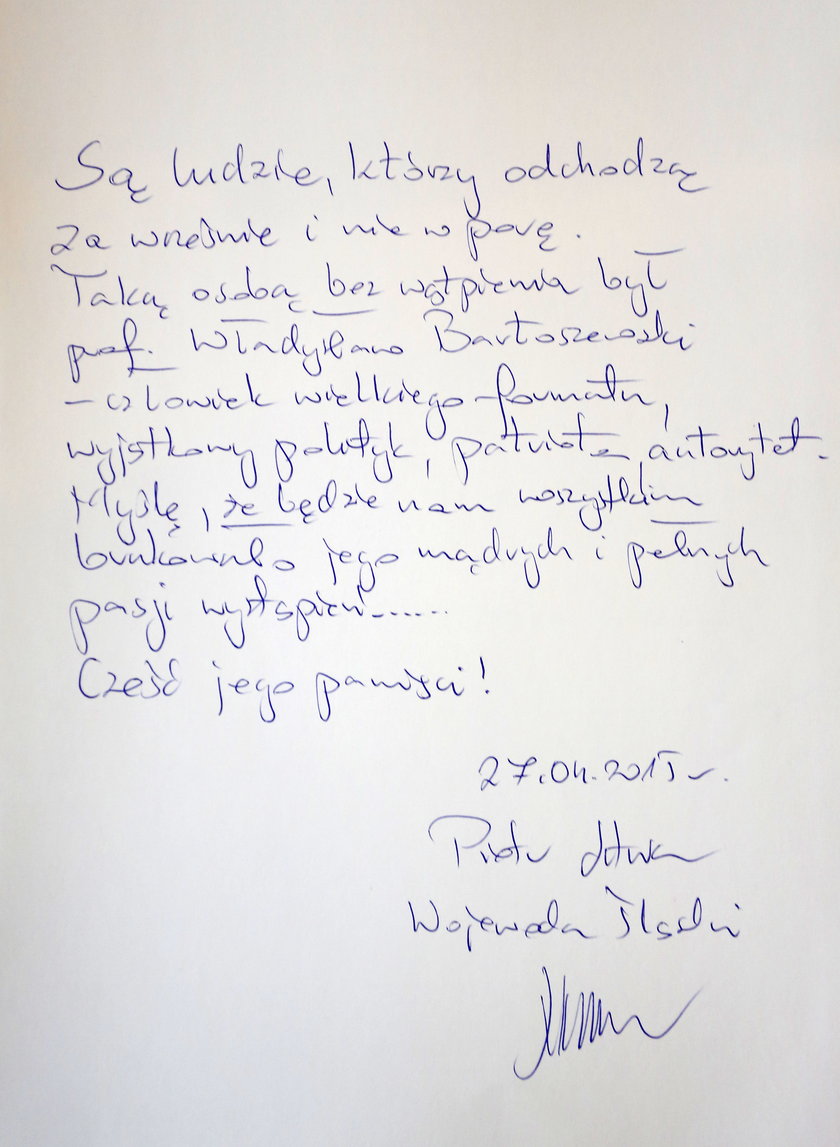 Są ludzie, którzy odchodzą
za wcześnie i nie w porę.
Taką osobą bez wątpienia był
prof. Władysław Bartoszewski
- człowiek wielkiego formatu,
wyjątkowy polityk, patriota, autorytet.
Myślę, że będzie nam wszystkim
brakowało jego mądrych i pełnych
pasji wystąpień......
Cześć jego pamięci!
27.04.2015 r.
Piotr Litwa
Wojewoda Śląski